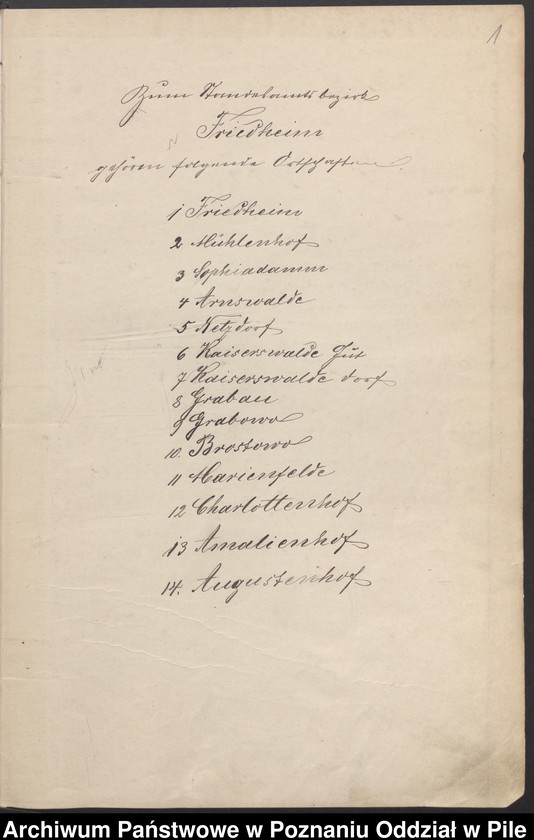 1
Zum Standesamtsbezirk
Friedheim
gehören folgende Ortschaften
1 Friedheim
2 Mühlenhof
3 Sophiadamm
4 Arnswalde
5 Netzdorf
6 Kaiserswalde Gut
7 Kaiserswalde dorf
8 Grabau
9 Grabowo
10. Brostowo
11 Marienfelde
12 Charlottenhof
13 Amalienhof
14. Augustenhof
Archiwum Państwowe w Poznaniu Oddział w Pile